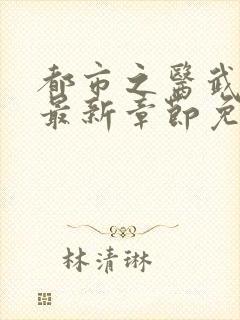 都市之醫武
最新章節免
林清琳